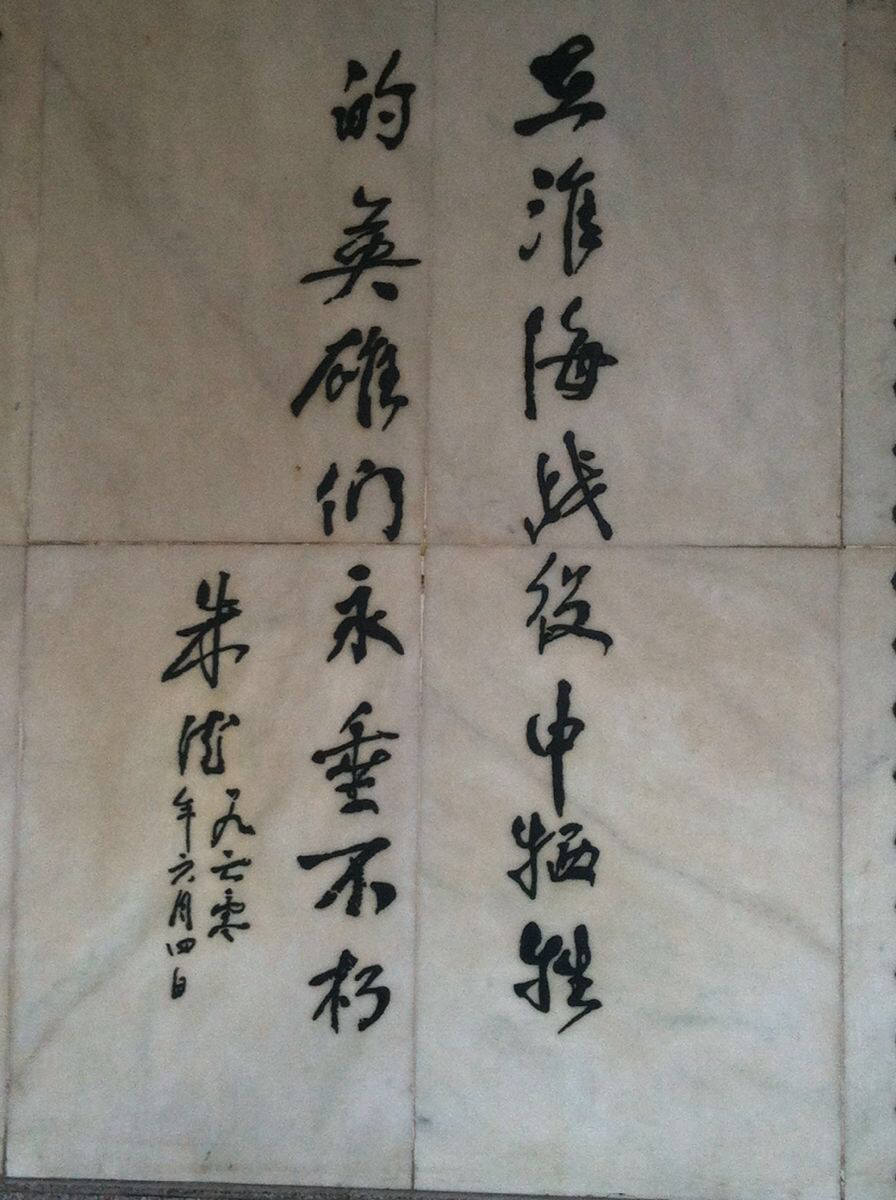 在淮海战役中牺牲
的英雄们永垂不朽
朱德
一九六零
年六月四日